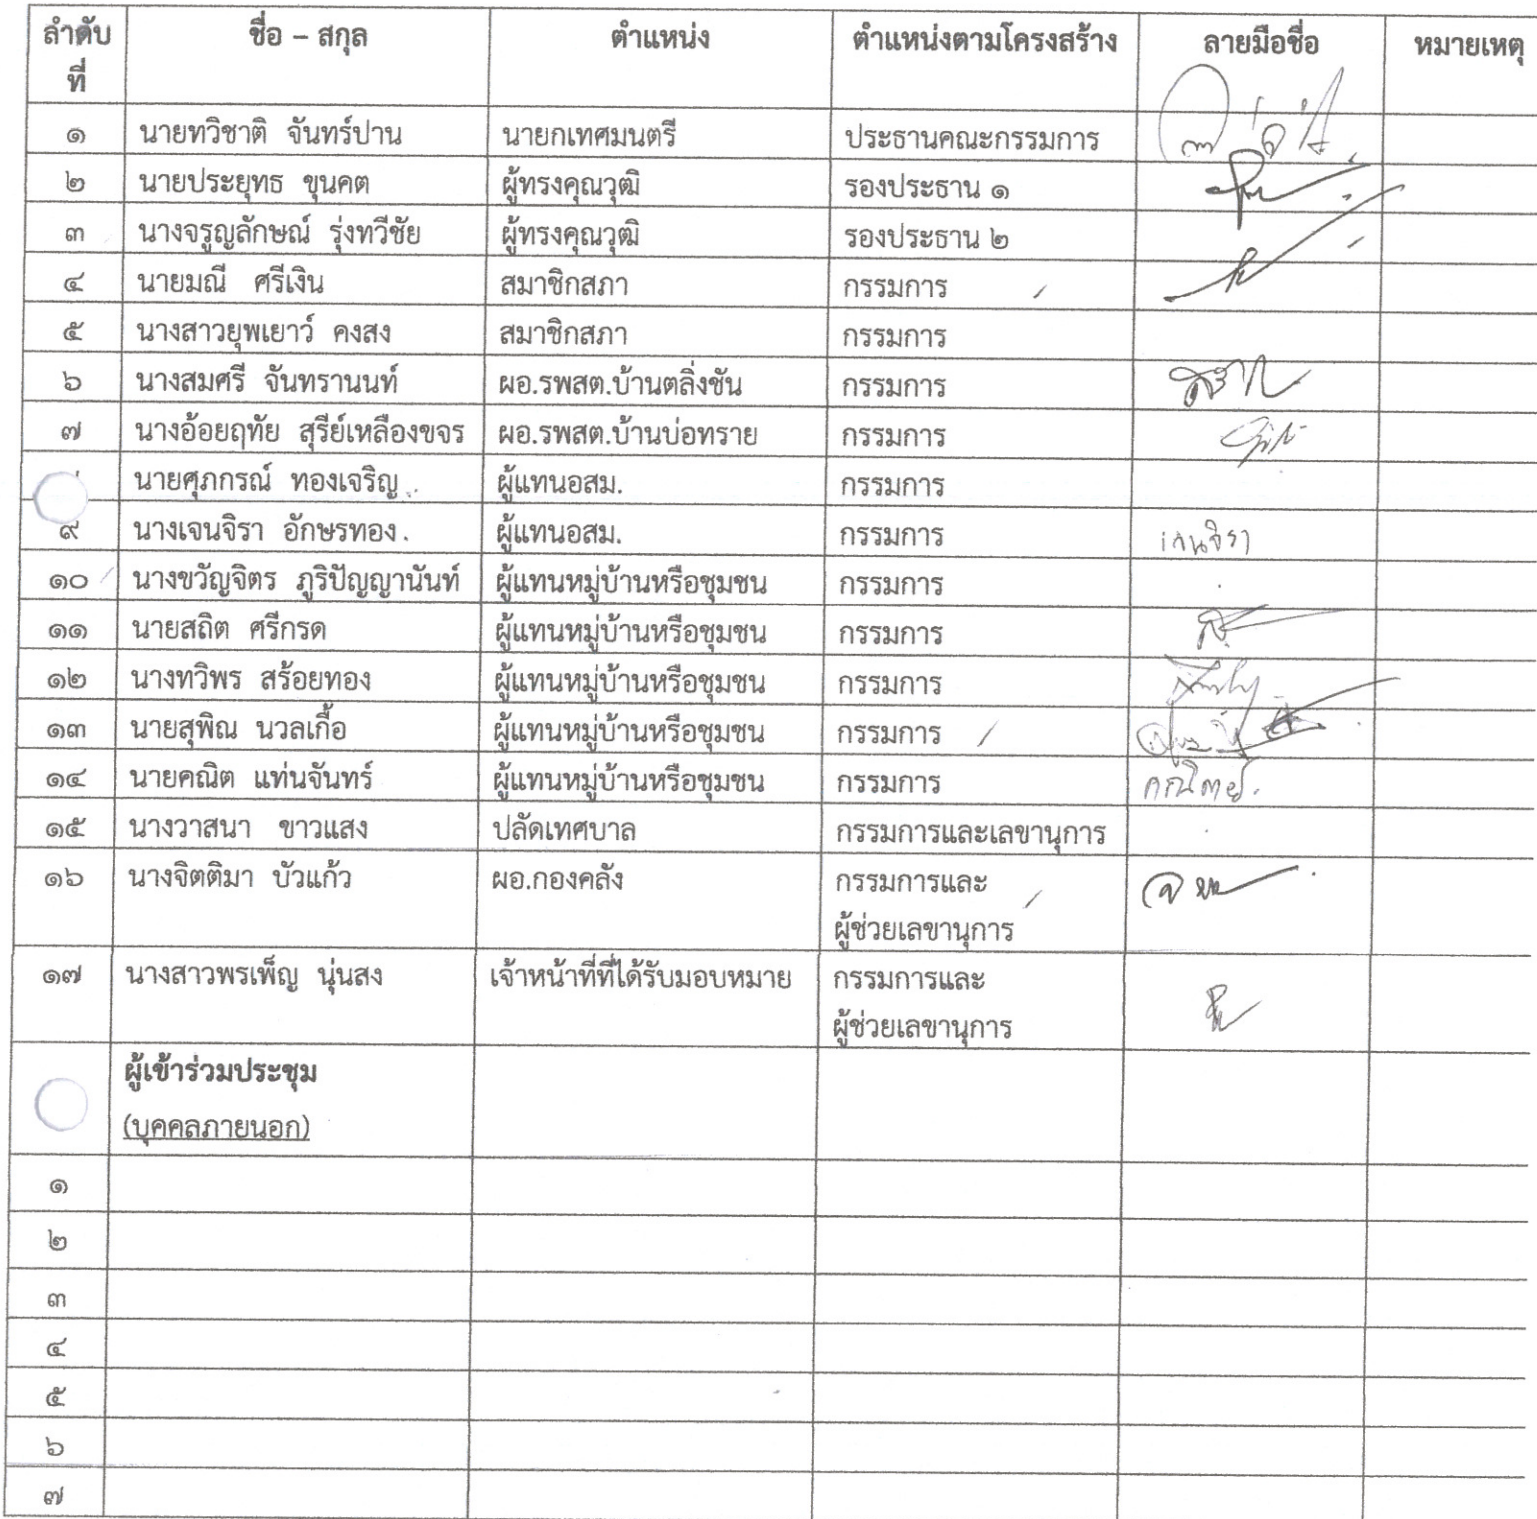 ลำดับที่ ชื่อ – สกุล ตำแหน่ง ตำแหน่งตามโครงสร้าง ลายมือชื่อ หมายเหตุ
๑ นายทวิชาติ จันทร์ปาน นายกเทศมนตรี ประธานคณะกรรมการ
๒ นายประยุทธ ขุนคต ผู้ทรงคุณวุฒิ รองประธาน ๑
๓ นางจรูญลักษณ์ รุ่งทวีชัย ผู้ทรงคุณวุฒิ รองประธาน ๒
๔ นายมณี ศรีเงิน สมาชิกสภา กรรมการ
๕ นางสาวยุพเยาว์ คงสง สมาชิกสภา กรรมการ
๖ นางสมศรี จันทรานนท์ ผอ.รพสต.บ้านตลิ่งชัน กรรมการ
๗ นางอ้อยฤทัย สุรีย์เหลืองขจร ผอ.รพสต.บ้านบ่อทราย กรรมการ
นายศุภกรณ์ ทองเจริญ ผู้แทนอสม. กรรมการ
๙ นางเจนจิรา อักษรทอง ผู้แทนอสม. กรรมการ เจนจิรา
๑๐ นางขวัญจิตร ภูริปัญญานันท์ ผู้แทนหมู่บ้านหรือชุมชน กรรมการ
๑๑ นายสถิต ศรีกรด ผู้แทนหมู่บ้านหรือชุมชน กรรมการ
๑๒ นางทวิพร สร้อยทอง ผู้แทนหมู่บ้านหรือชุมชน กรรมการ
๑๓ นายสุพิณ นวลเกื้อ ผู้แทนหมู่บ้านหรือชุมชน กรรมการ
๑๔ นายคณิต แท่นจันทร์ ผู้แทนหมู่บ้านหรือชุมชน กรรมการ
๑๕ นางวาสนา ขาวแสง ปลัดเทศบาล กรรมการและเลขานุการ
๑๖ นางจิตติมา บัวแก้ว ผอ.กองคลัง กรรมการและ
ผู้ช่วยเลขานุการ
๑๗ นางสาวพรเพ็ญ นุ่นสง เจ้าหน้าที่ที่ได้รับมอบหมาย กรรมการและ
ผู้ช่วยเลขานุการ
ผู้เข้าร่วมประชุม
(บุคคลภายนอก)
๑
๒
๓
๔
๕
๖
๗